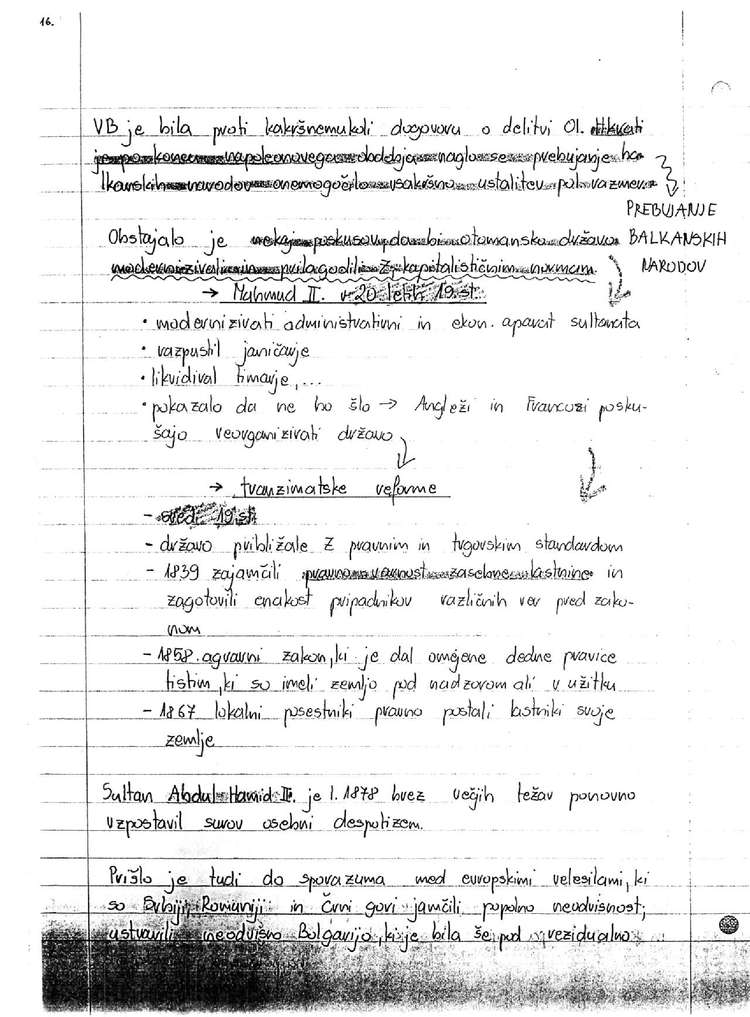 16.
VB je bila proti kakršnemukoli dogovoru o delitvi OI. Hkrati
je po koncu napoleonovega obdobja naglo se prebujanje ba-
lkanskih narodov onemogočilo vsakršno ustalitev pol. razmer.
PREBUJANJE
BALKANSKIH
NARODOV
Obstajalo je nekaj poskusov, da bi otomansko državo
modernizirali in prilagodili z kapitalističnim normam.
→ Mahmud II. v 20 letih 19.st.
• modernizirati administrativni in ekon. aparat sultanata
• razpustil janičarje
• likvidiral timarje,...
• pokazalo da ne bo šlo → Angleži in Francozi posku-
šajo reorganizirati državo
→ tranzimatske reforme
- sredi 19.st.
- državo približale z pravnim in trgovskim standardom
- 1839 zajamčili pravno varnost zasebne lastnine in
zagotovili enakost pripadnikov različnih ver pred zako-
nom
- 1858. agrarni zakon, ki je dal omejene dedne pravice
tistim, ki so imeli zemljo pod nadzorom ali v užitku
- 1867 lokalni posestniki pravno postali lastniki svoje
zemlje
Sultan Abdul Hamid II. je l. 1878 brez večjih težav ponovno
vzpostavil surov osebni despotizem.
Prišlo je tudi do sporazuma med evropskimi velesilami, ki
so Srbiji, Romuniji in Črni gori jamčili popolno neodvisnost,
ustvarili neodvisno Bolgarijo, ki je bila še pod rezidualno